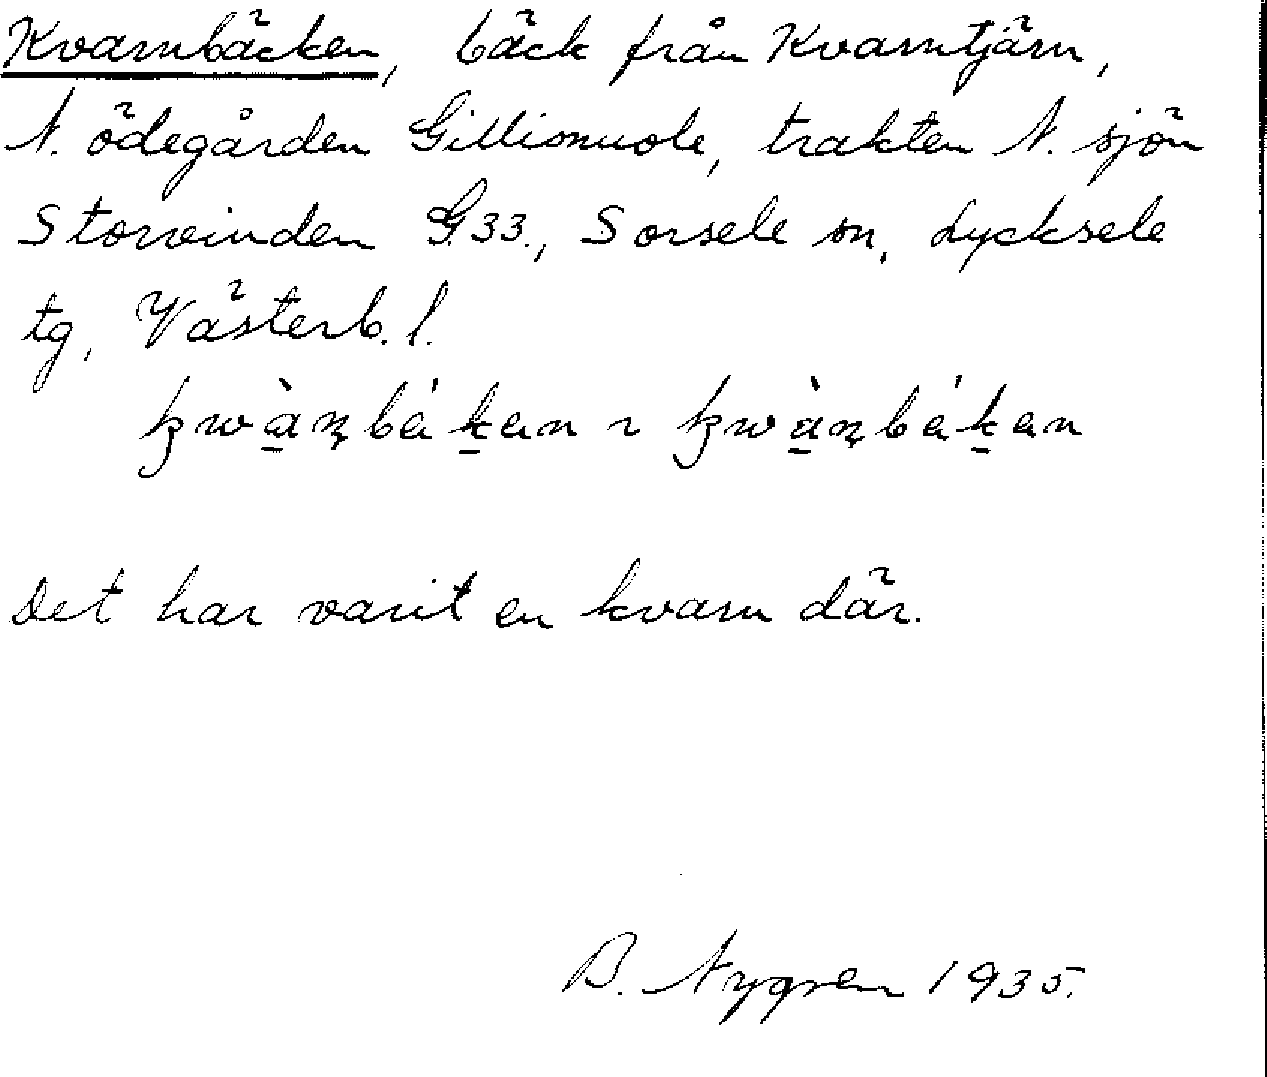 Kvarnbäcken, bäck från Kvarntjärn,
N. ödegården Gillisnuole, trakten N. sjön
Storvinden G.33., Sorsele sn, Lycksele
tg, Västerb. l.
Det har varit en kvarn där.
B. Nygren 1935.